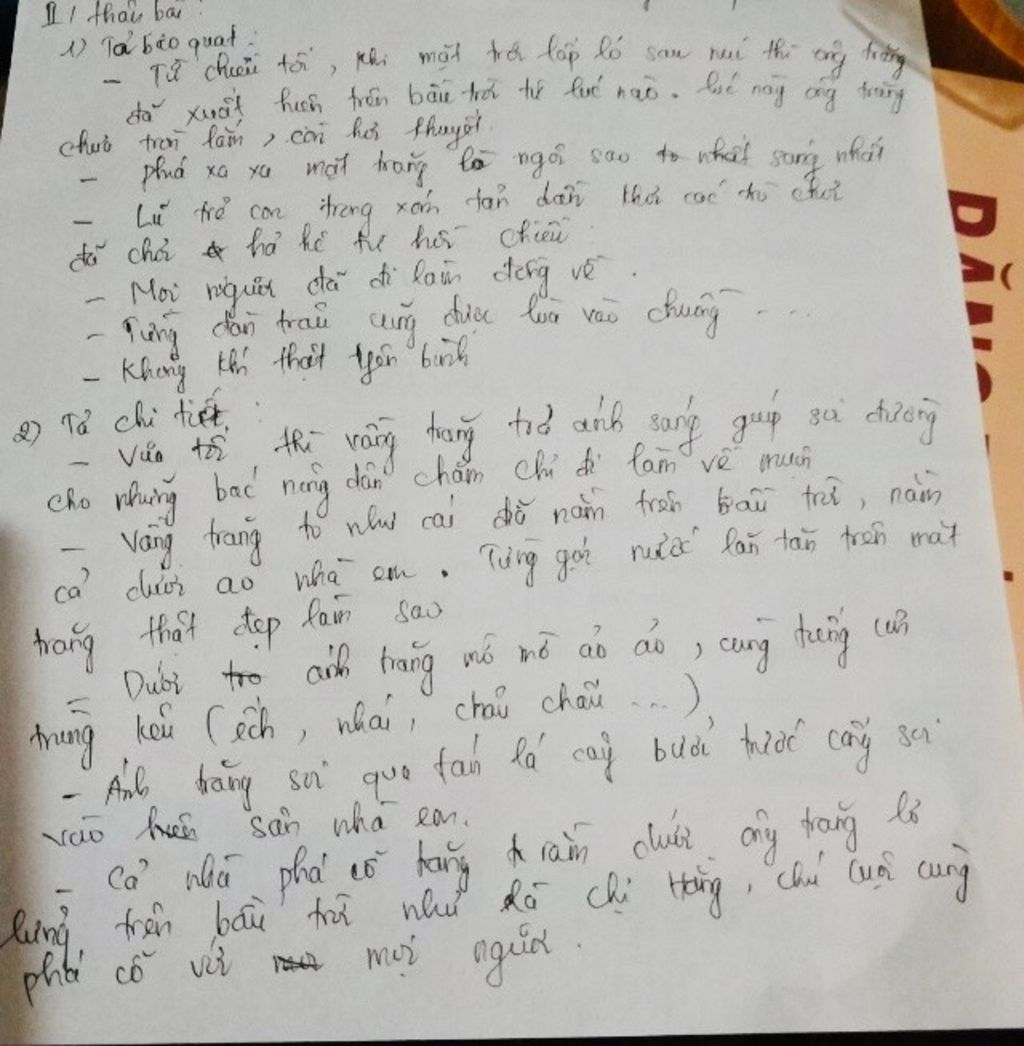 II / thân bài :
1) Tả bao quát :
- Từ chiều tối, khi mặt trời lấp ló sau núi thì ông trăng
đã xuất hiện trên bầu trời từ lúc nào. lúc này ông trăng
chưa tròn lắm, còn hơi khuyết.
- phía xa xa mặt trăng là ngôi sao to nhất sáng nhất
- Lũ trẻ con trong xóm tản dần khỏi các trò chơi
đã chơi hả hê từ hồi chiều
- Mọi người đã đi làm đồng về.
- Từng đàn trâu cũng được lùa vào chuồng ...
- Không khí thật yên bình
2) Tả chi tiết :
- Vừa tối thì vầng trăng trở ánh sáng giúp soi đường
cho những bác nông dân chăm chỉ đi làm về muộn
- Vầng trăng to như cái nằm trên bầu trời, nằm
cả dưới ao nhà em. Từng gợi nước lăn tăn trên mặt
trăng thật đẹp làm sao
- Dưới ánh trăng mờ mờ ảo ảo, cùng tiếng côn
trùng kêu (ếch, nhái, chẫu chấu ...)
- Ánh trăng soi qua tán lá cây bưởi trước cổng soi
vào sân nhà em.
- Cả nhà phá cỗ trăng rằm dưới ông trăng lơ
lửng trên bầu trời như là chị Hằng, chú Cuội cùng
phá cỗ với mọi người.
DĂNG